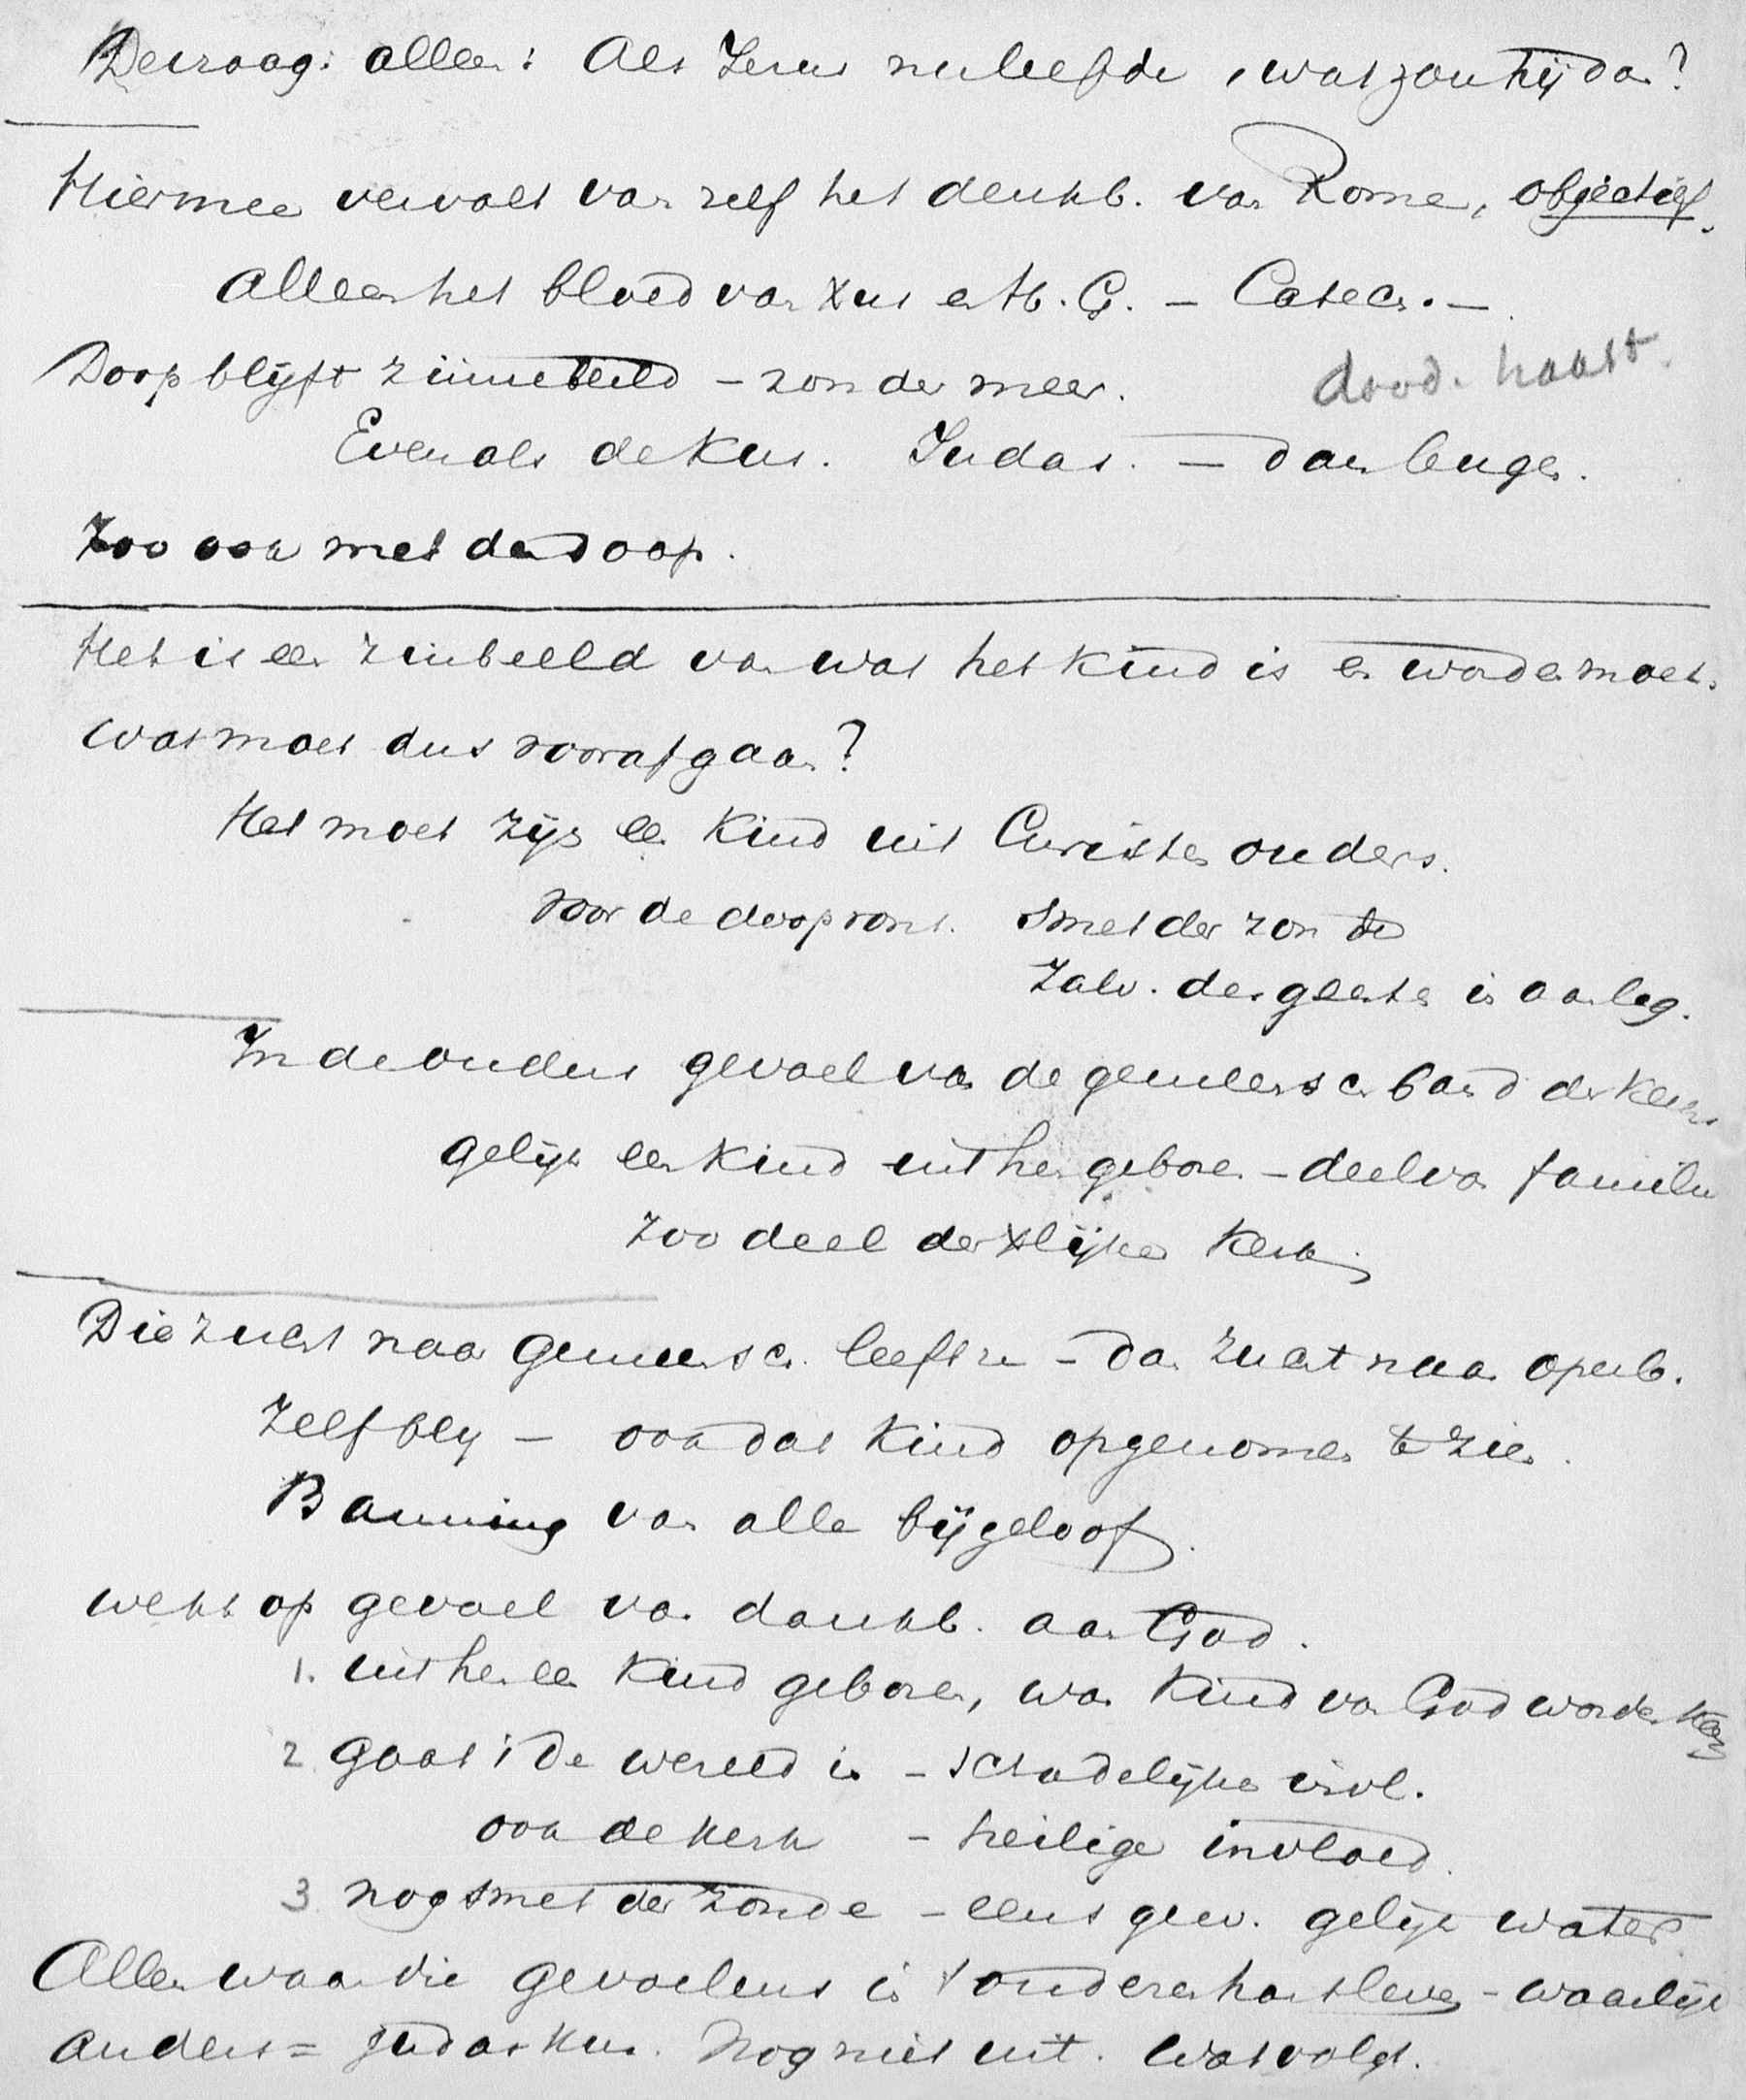 De vraag: alleen: Als Jezus nu leefde, wat zou hij doen?
Hiermee vervalt van zelf het denkb. van Rome, objectief.
Alleen het bloed van Xus en H. G. – Catech. –
Doop blijft zinnebeeld – zonder meer.
dood. haast.
Evenals de kus. Judas. – dan leugen.
Zoo ook met den doop.
Het is een zinbeeld van wat het kind is en worden moet.
Wat moet dus voorafgaan?
Het moet zijn een kind uit Christen ouders.
voor de doopvont. smet der zonde
Zalv. des geestes in aanleg.
In de ouders gevoel van de gemeensch band der kerk
gelijk een kind uit hen geboren – deel van familie
zoo deel der Xlijke Kerk.
Die zucht naar gemeensch. leeft er – dan zucht naar openb.
Zelf blij – ook dat kind opgenomen te zien.
Banning van alle bijgeloof.
wekt op gevoel van dankb. aan God.
1. uit hen een kind geboren, wat kind van God worden kan
2. gaat i de wereld in – schadelijke invl.
ook de kerk – heilige invloed.
3 nog smet der zonde – eens gew. gelijk water.
Alleen waar die gevoelens in 't ouderenhart leven – waarlijk
anders = Judaskus. Nog niet uit. Wat volgt.